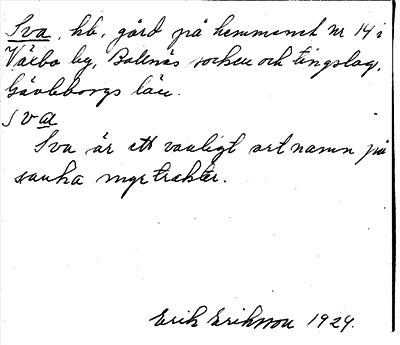 Sva, hb, gård på hemmanet nr 14 i
Växbo by, Bollnäs socken och tingslag,
Gävleborgs län.
sva
Sva är ett vanligt ortnamn på
sanka myrtrakter.
Erik Eriksson 1924.